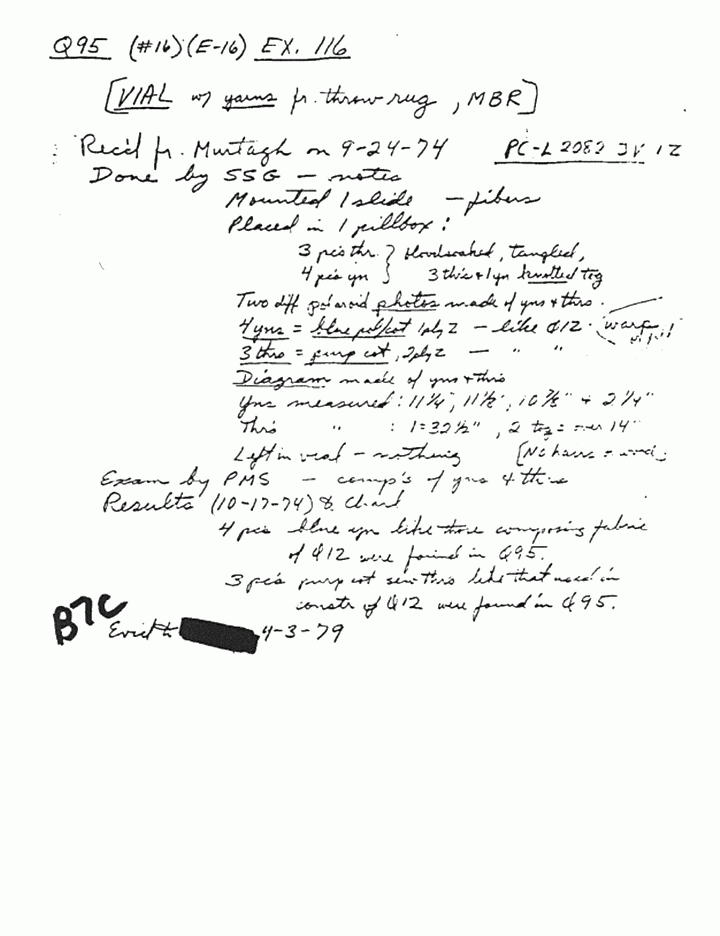 Q95 (#16)(E-16) EX. 116
[VIAL w/ yarns fr. throw rug, MBR]
Rec'd fr. Murtagh on 9-24-74 PC-L 2082 JV 1Z
Done by SSG – notes
Mounted 1 slide – fibers
Placed in 1 pillbox:
3 pcs thr. } bloodsoaked, tangled,
4 pcs yn } 3 thr's + 1 yn knotted tog
Two diff polaroid photos made of yns + thrs.
4 yns = blue pol/cot 1ply Z – like Q12. warp
3 thrs = purp cot, 2ply Z — " "
Diagram made of yns + thrs
Yns measured: 11 1/4", 11 1/2", 10 7/8" + 2 1/4"
Thr's " : 1=32 1/2", 2 tog = over 14"
Left in vial – nothing [No hairs =
Exam by PMS – comp's of yns + thrs
Results (10-17-74) & Chart
4 pcs blue yn like those composing fabric
of Q12 were found in Q95.
3 pcs purp cot sew thrs like that used in
constr of Q12 were found in Q95.
B7C
Evid to 4-3-79